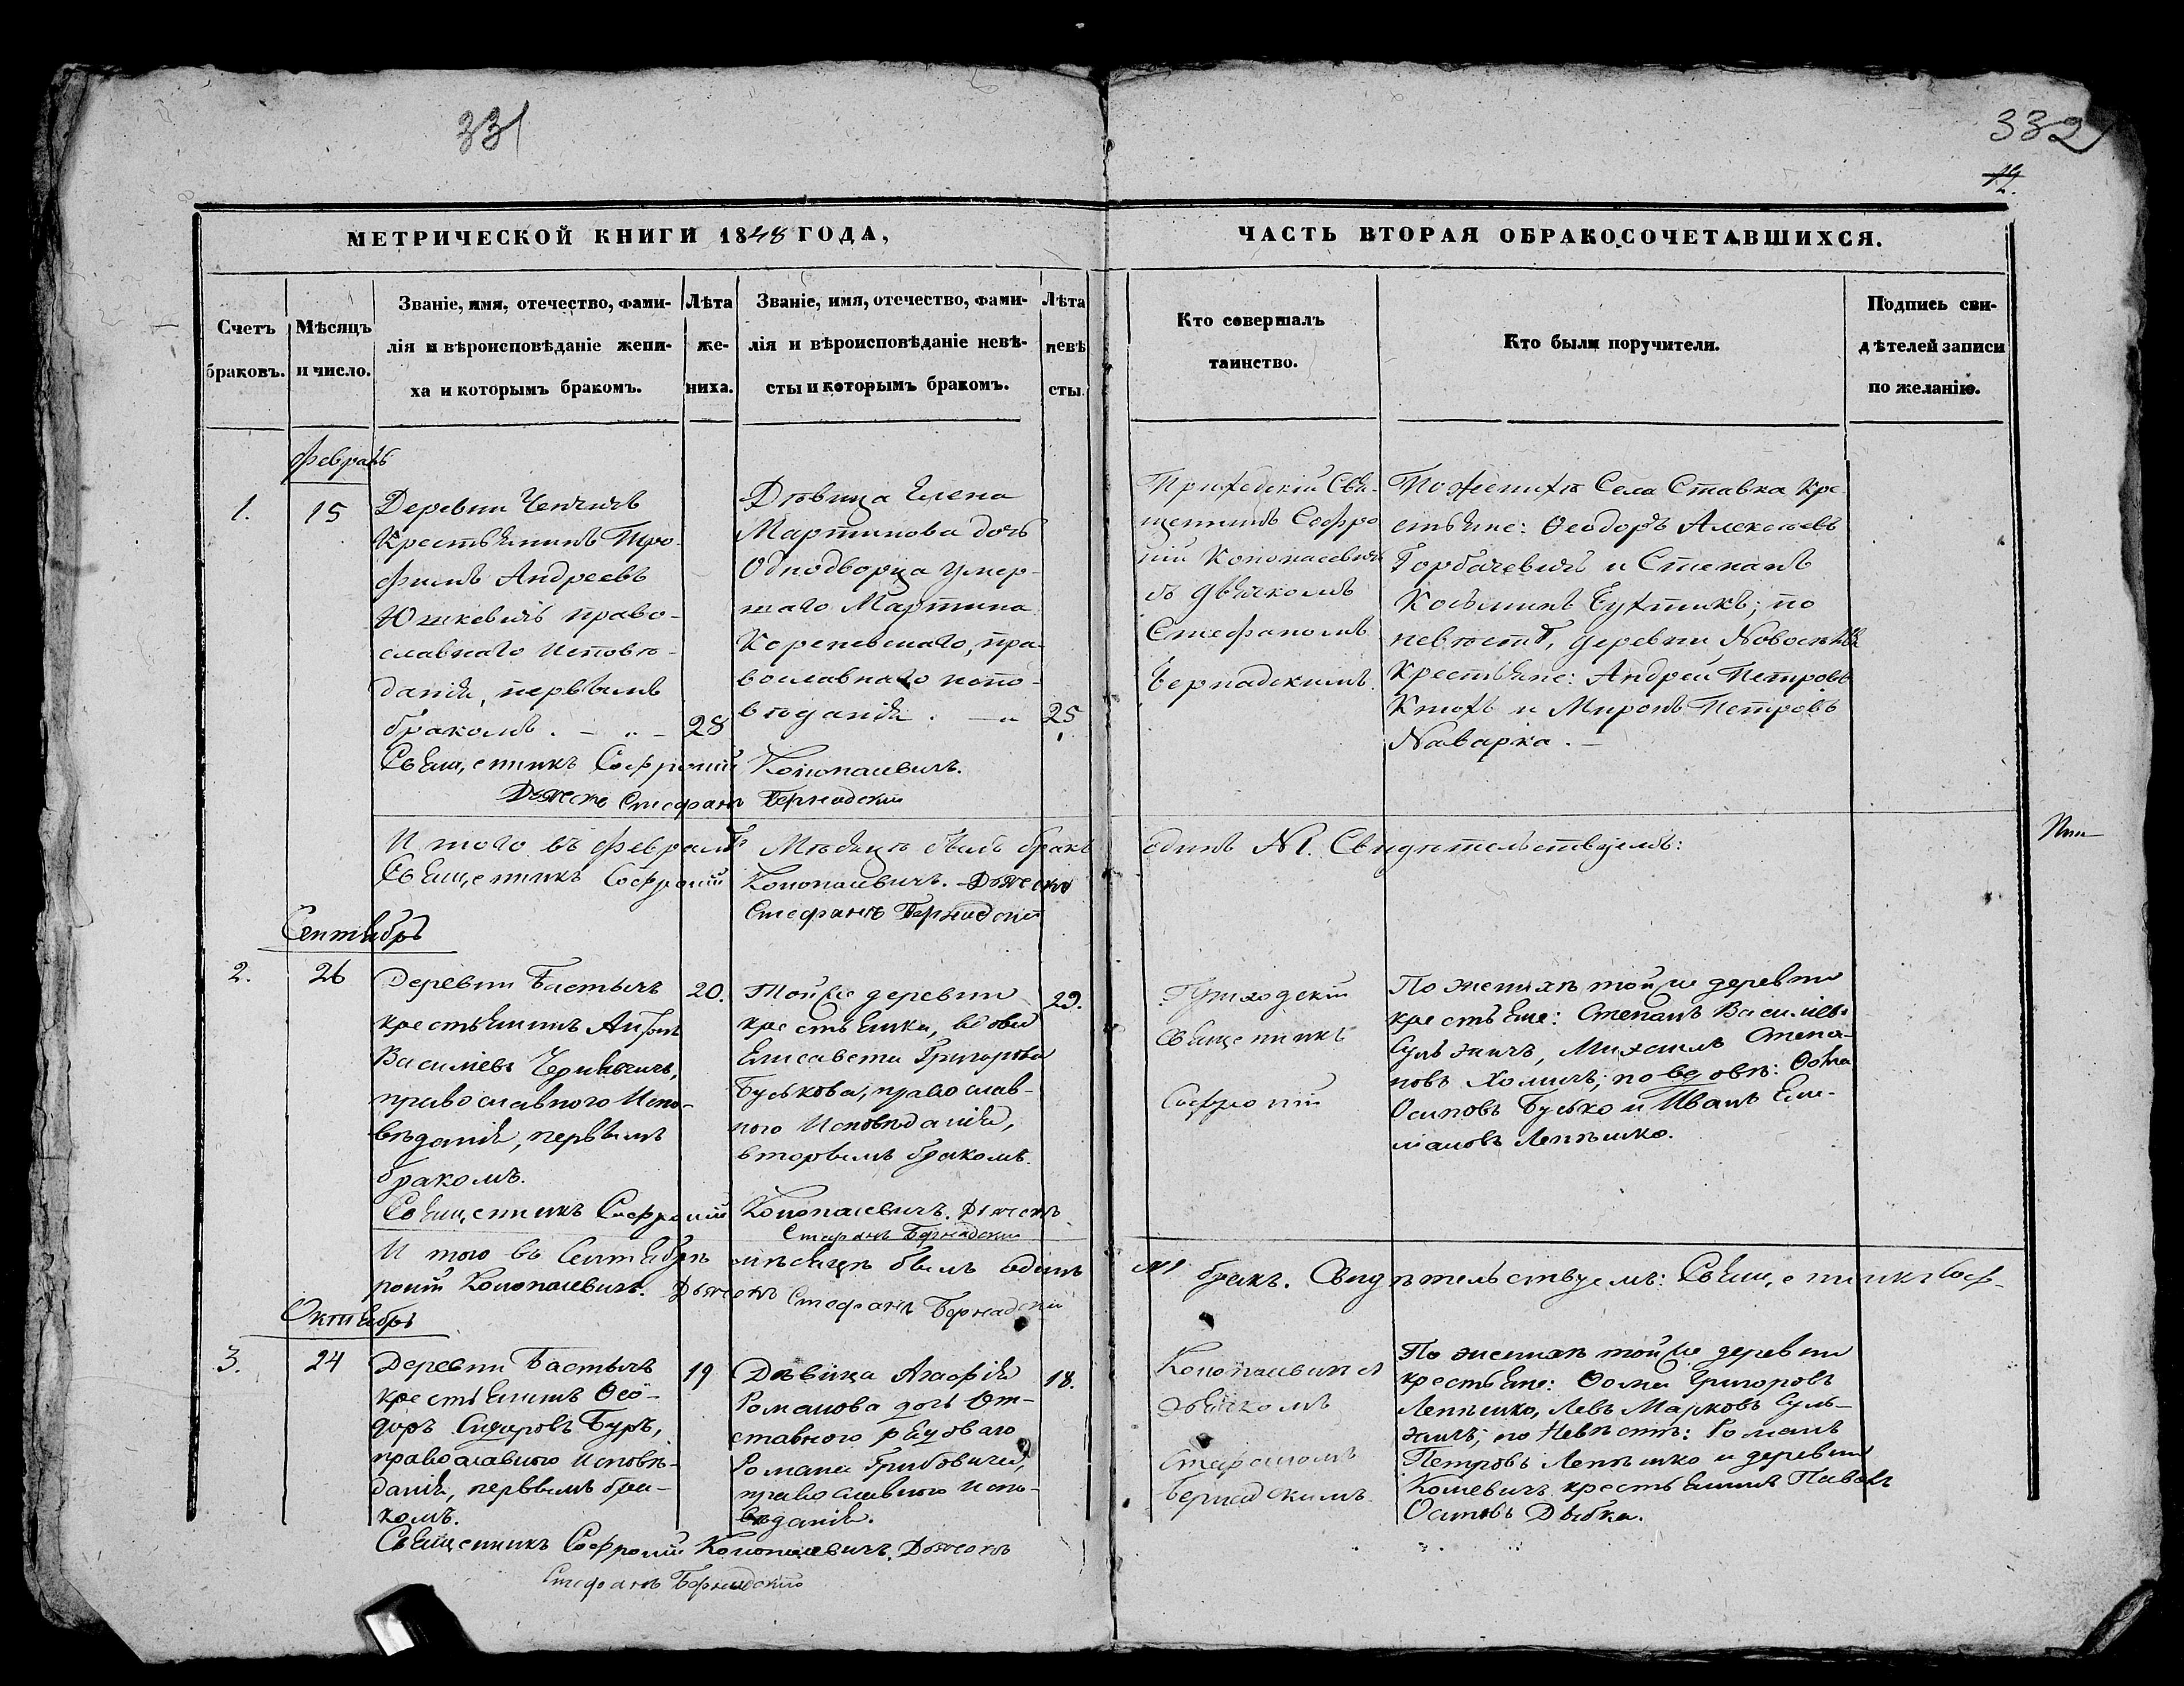 331
332
12.
МЕТРИЧЕСКОЙ КНИГИ 1848 ГОДА,
ЧАСТЬ ВТОРАЯ ОБРАКОСОЧЕТАВШИХСЯ.
Счетъ
браковъ.
Мѣсяцъ
и число.
Званіе, имя, отечество, фами-
лія и вѣроисповѣданіе жени-
ха и которымъ бракомъ.
Лѣта
же-
ниха.
Званіе, имя, отечество, фами-
лія и вѣроисповѣданіе невѣ-
сты и которымъ бракомъ.
Лѣта
невѣ
сты.
Кто совершалъ
таинство.
Кто были поручители.
Подпись сви-
дѣтелей записи
по желанію.
Февраль
1.
15
Деревни
Крестьянинъ Тро-
фимъ Андреевъ
Юшкевичъ право-
славнаго исповѣ-
данія, первымъ
бракомъ.
28
Дѣвица Елена
Мартинова дочь
Однодворца умер-
шаго Мартина
Кореневскаго, пра-
вославнаго испо-
вѣданія.
25
Приходскій Свя-
щенникъ Софро
ній Конопасевичъ
съ дьячкомъ
Стефаномъ
Бернадскимъ.
По женихѣ Села Ставка Кре-
стьяне: Ѳеодоръ Алексѣевъ
Горбачевичъ и Степанъ
Косьминъ Бухтикъ; по
невѣстѣ, деревни Новоселокъ
Крестьяне: Андрей Петровъ
Кнохъ и Миронъ Петровъ
Наварка.
Священникъ Софроній Конопасевичъ.
Дьячекъ Стефанъ Бернадскій
Итого въ Февралѣ Мѣсяцѣ былъ бракъ одинъ №1. Свидѣтельствуемъ:
Священникъ Софроній Конопасевичъ. Дьячекъ
Стефанъ Бернадскій
Сентябрь
2.
26
Деревни Бастычъ
крестьянинъ Антонъ
Василіевъ
православного Испо-
вѣданія, первымъ
бракомъ.
20.
Той же деревни
крестьянка, вдова
Елисавета Григорова
Буськова, православ-
ного Исповѣданія,
вторымъ бракомъ.
29.
Приходскій
священникъ
Софроній
По женихѣ той же деревни
крестьяне: Степанъ Василіевъ
Сульжичъ, Михаилъ Степа-
новъ Хомичъ; по вдовѣ: Ѳома
Осиповъ Бусько и Иванъ Еме-
ліановъ Лепешко.
Священникъ Софроній Конопасевичъ. Дьячекъ
Стефанъ Бернадскій
Итого въ Сентябрѣ мѣсяцѣ былъ одинъ №1 бракъ. Свидѣтельствуемъ: Священникъ Соф-
роній Конопасевичъ. Дьячекъ Стефанъ Бернадскій
Октябрь
3.
24
Деревни Бастычъ
крестьянинъ Ѳео-
доръ Сидоровъ Буръ,
православного Исповѣ-
данія, первымъ бра-
комъ.
19
Дѣвица Агафія
Романова дочь От-
ставного рядоваго
Романа Грибовича,
православного Испо-
вѣданія.
18.
Конопасевичъ
дьячкомъ
Стефаномъ
Бернадскимъ.
По женихѣ той же деревни
крестьяне: Ѳома Григоровъ
Лепешко, Левъ Марковъ Суль-
жичъ; по Невѣстѣ: Романъ
Петровъ Лепешко и деревни
Кошевичъ крестьянинъ Павелъ
Осиповъ Дыбка.
Священникъ Софроній Конопасевичъ. Дьячекъ
Стефанъ Бернадскій